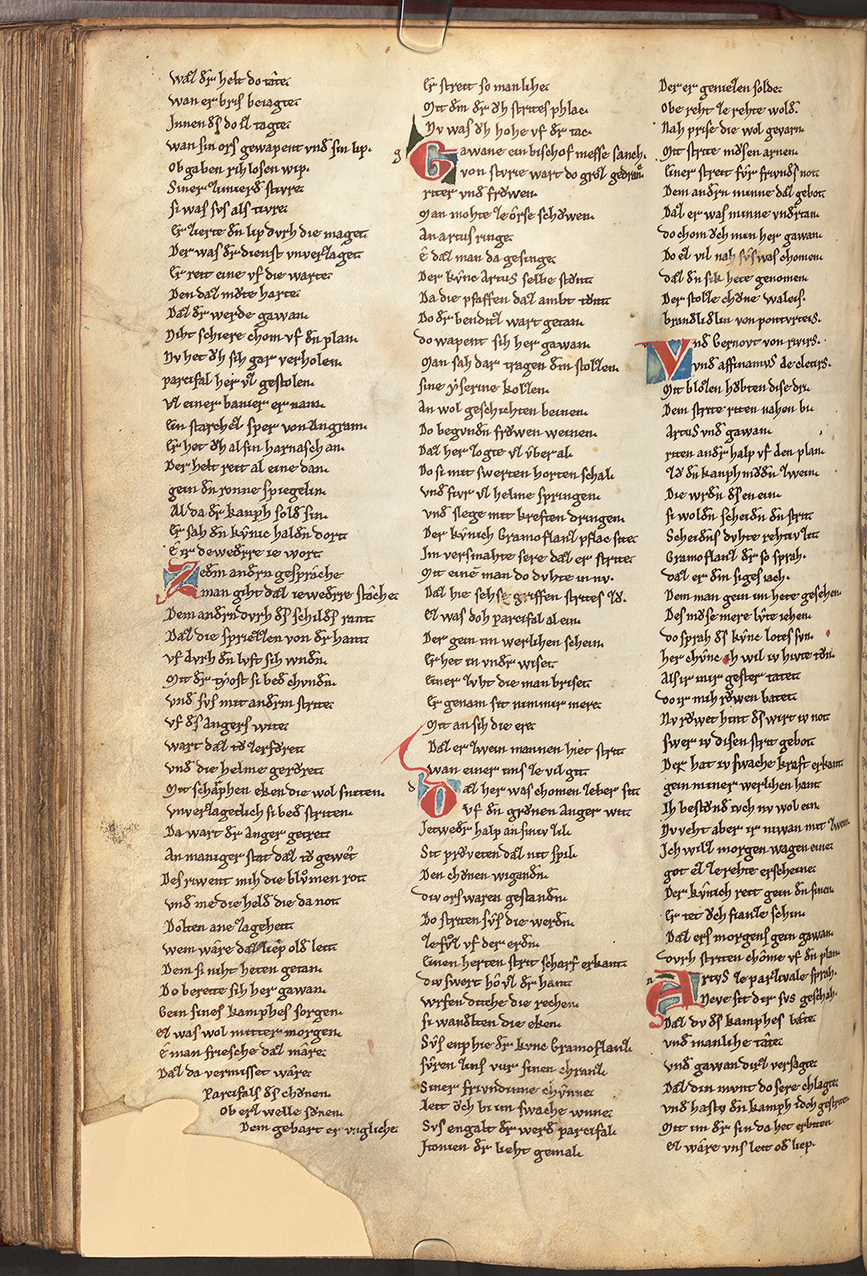 waſ dˢ helt do tæte.
wan er bris beiagte.
Innen dˢ do eſ tagte.
wan sin ors gewapent vnd sin lip.
Ob gaben rih losen wip.
Siner zimierd stivre.
si was svs als tivre.
Er zierte dn lip dvrh die maget.
Der was dˢ dienst vnverzaget.
Er reit eine vf die warte.
Den daz mvte harte.
Daz dˢ werde gawan.
Niht schiere chom vf dn plan.
Nv het dˢ sih gar verholen.
parcifal her vz gestolen.
vz einer banier er nam.
Ein starchez sper von Angram.
Er het ôh al sin harnasch an.
Der helt reit al eine dan.
gein dn ronne spiegelin.
Al da dˢ kanph sold sin.
Er sah dn kvnic haldn dort.
E er dewedˢre ie wort.
Zedem andˢn gespræche
man giht daz iewedˢre stæche.
Dem andˢn dvrh dˢ schildˢ rant.
Daz die sprizzen von dˢ hant.
vf dvrh dn lvft sih wndn.
Mit dˢ tyost si bed chvndn.
vnd svs mit andˢm strite.
vf dˢ angers wite.
wart daz to zerfvret.
vnd die helme gervret.
Mit schærphen eken die wol sniten.
vnverzagetlich si bed striten.
Da wart dˢ anger getret.
An maniger stat daz to gewet.
Des riwent mih die blvmen rot.
vnd me die helde die da not.
Dolten ane zageheit.
wem wære daz liep old leit.
Dem si niht heten getan.
Do bereite sih her gawan.
Gein sines kamphes sorgen.
ez was wol mitter morgen.
E man friesche daz mære.
Daz da vermisset wære.
Parcifals dˢ chônen.
Ob erz welle sônen.
Dem gebart er vngliche.
Er streit so manliche.
Mit dem dˢ ôh strites phlac.
Nv was ôh hohe vf dˢ tac.
Gawane ein bischof messe sanch.
von styrie wart do groz gedranc.
ritter vnd frôwen.
Man mohte ze orse schôwen.
An artus ringe.
E daz man da gesinge.
Der kvnc Artus selbe stônt.
Da die pfaffen daz ambt tônt.
Do dˢ bendiz wart getan.
do wapent sih her gawan.
Man sah dar tragen dem stolzen.
sine yserine kolzen.
An wol geschihten beinen.
Do begvndn frôwen weinen.
Daz her zogte vz vber al.
Do si mit swerten horten schal.
vnd fivr vz helme springen.
vnd slege mit kreften dringen.
Der kvnich Gramoflanz pflac site.
Im versmahte sere daz er strite.
Mit einem man do dvhte in nv.
Daz hie sehse griffen strites zv.
ez was doh parcifal al ein.
Der gein im werlichen schein.
Er het in vndˢ wiset.
Einer zvht die man briset.
Er genam sit nimmer mere.
Mit an sih die ere.
Daz er zwein mannen hiet strit
wan einer ims ze vil git.
Daz her was chomen ze ber sit
vf dn grônen anger wit.
Jetwedˢ halp an siniv zil.
Sit prôveten daz nit spil.
Den chônen wigandn.
div ors waren gestandn.
Do striten svs die werdn.
ze fvz vf der erdn.
Einen herten strit scharf erkant.
div swert hôh vz dˢ hant.
wrfen diche die rechen.
si wandlten die eken.
Svs enphie dˢ kvnc Gramoflanz.
svren zins vur sinen chranz.
Siner frivndinne chvnne.
leit ôch bi im swache wnne.
Svs engalt dˢ werd parcifal.
Itonien dˢ lieht gemal.
Der er geniezen solde.
Obe reht ze rehte wold.
Nah prise die wol gevarn.
Mit strite mvsen arnen.
Einer streit fvr frivndˢ not.
Dem andˢn minne daz gebot.
Daz er was minne vndˢtan.
do chom ôch min her gawan.
Do ez vil nah svs was chomen.
daz dn sik hete genomen.
Der stolze chône waleis.
brandlidlin von pontvrteis.
Vnd Bernovt von riviers.
vnd affinamvs de cletirs.
Mit blozen hôbten dise dri.
Dem strite riten nahen bi.
Artus vnd gawan.
riten andˢ halp vf den plan.
zv dn kanphmvdn zwein.
Die wrdn dˢ en ein.
si woldn scheidn dn strit.
Scheidns dvhte rehtiv zit.
Gramoflanz dˢ so sprah.
daz er dem siges iach.
Dem man gein im hete gesehen.
Des mvse mere lvte iehen.
do sprah dˢ kvnc lotes svn.
her chvnc ih wil iv hivte tvn.
Als ir mir gester tatet.
do ir mih rôwen batet.
Nv rôwet hint dˢ wirt iv not.
swer iv disen strit gebot.
Der hat iv swache kraft erkant.
gein miner werlichen hant.
Ih bestônd ivch nv wol ein.
Nv veht aber ir niwan mit zwein.
Jch wilz morgen wagen eine.
got ez ze rehte erscheine.
Der kvnich reit gein dn sinen.
Er tet ôch fianze schin.
Daz ers morgens gein gawan.
dvrh striten chôme vf dn plan.
Artvs ze parcivale sprah.
Neve sit dir svs geschah.
Daz dv dˢ kamphes bæte.
vnd manliche tæte.
vnd gawan dirz versagte.
Daz din mvnt do sere chlagte.
vnd hastv dn kamph idoh gestriten.
Mit im dˢ sin da het erbiten.
ez wære vns leit od liep.